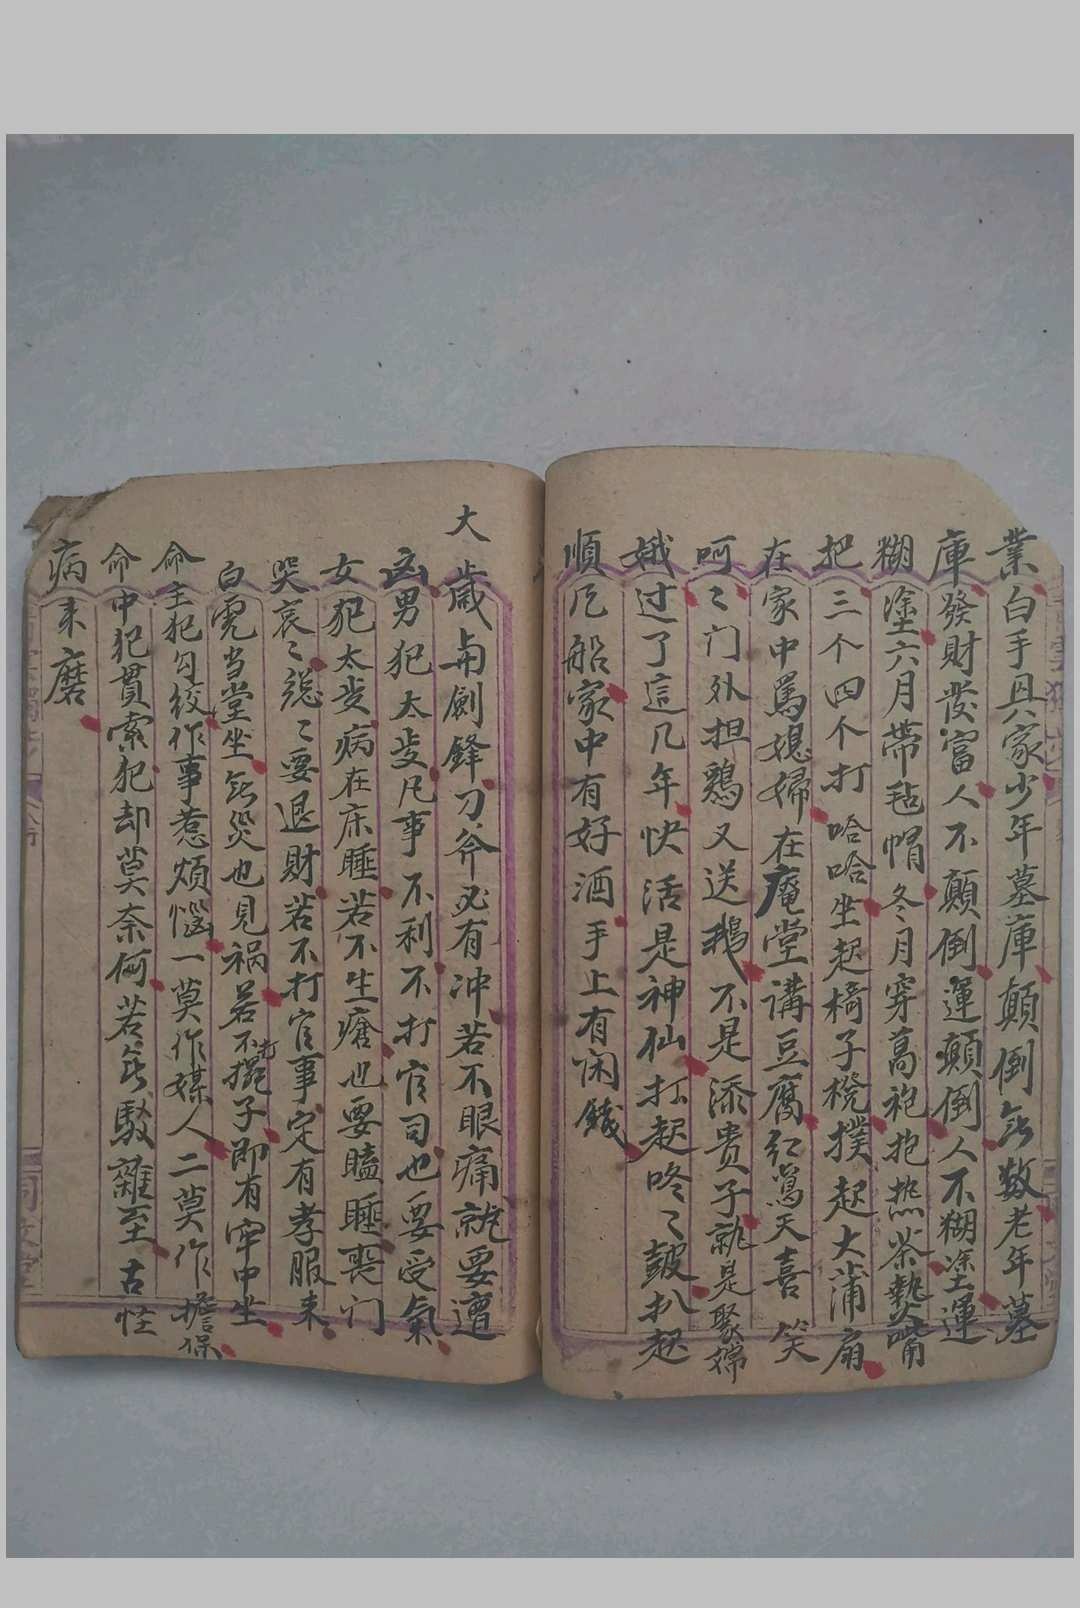 業白手興家少年墓庫顛倒無数老年墓
庫發財發富人不顛倒運顛倒人不糊塗運
糊塗六月帶毡帽冬月穿葛袍抱热茶熱嘴
把三个四个打哈哈坐起椅子櫈撲起大蒲扇
在家中罵媳婦在庵堂講豆腐红鸞天喜笑
呵〻门外担鷄又送鵝不是添贵子就是娶婦
娥过了這几年快活是神仙打起咚〻鼓扒起
順风船家中有好酒手上有闲錢
大歲与劍鋒刀斧必有冲若不眼痛就要遭
凶男犯太歲凡事不利不打官司也要受氣
女犯太歲病在床睡若不生瘡也要瞌睡丧门
哭哀〻總〻要退財若不打官事定有孝服来
白虎当堂坐無災也見祸若不打擺子即有牢中坐
命主犯勾绞作事惹烦惱一莫作媒人二莫作擔保
命中犯貫索犯却莫奈何若無駁雜至古怪
病来磨